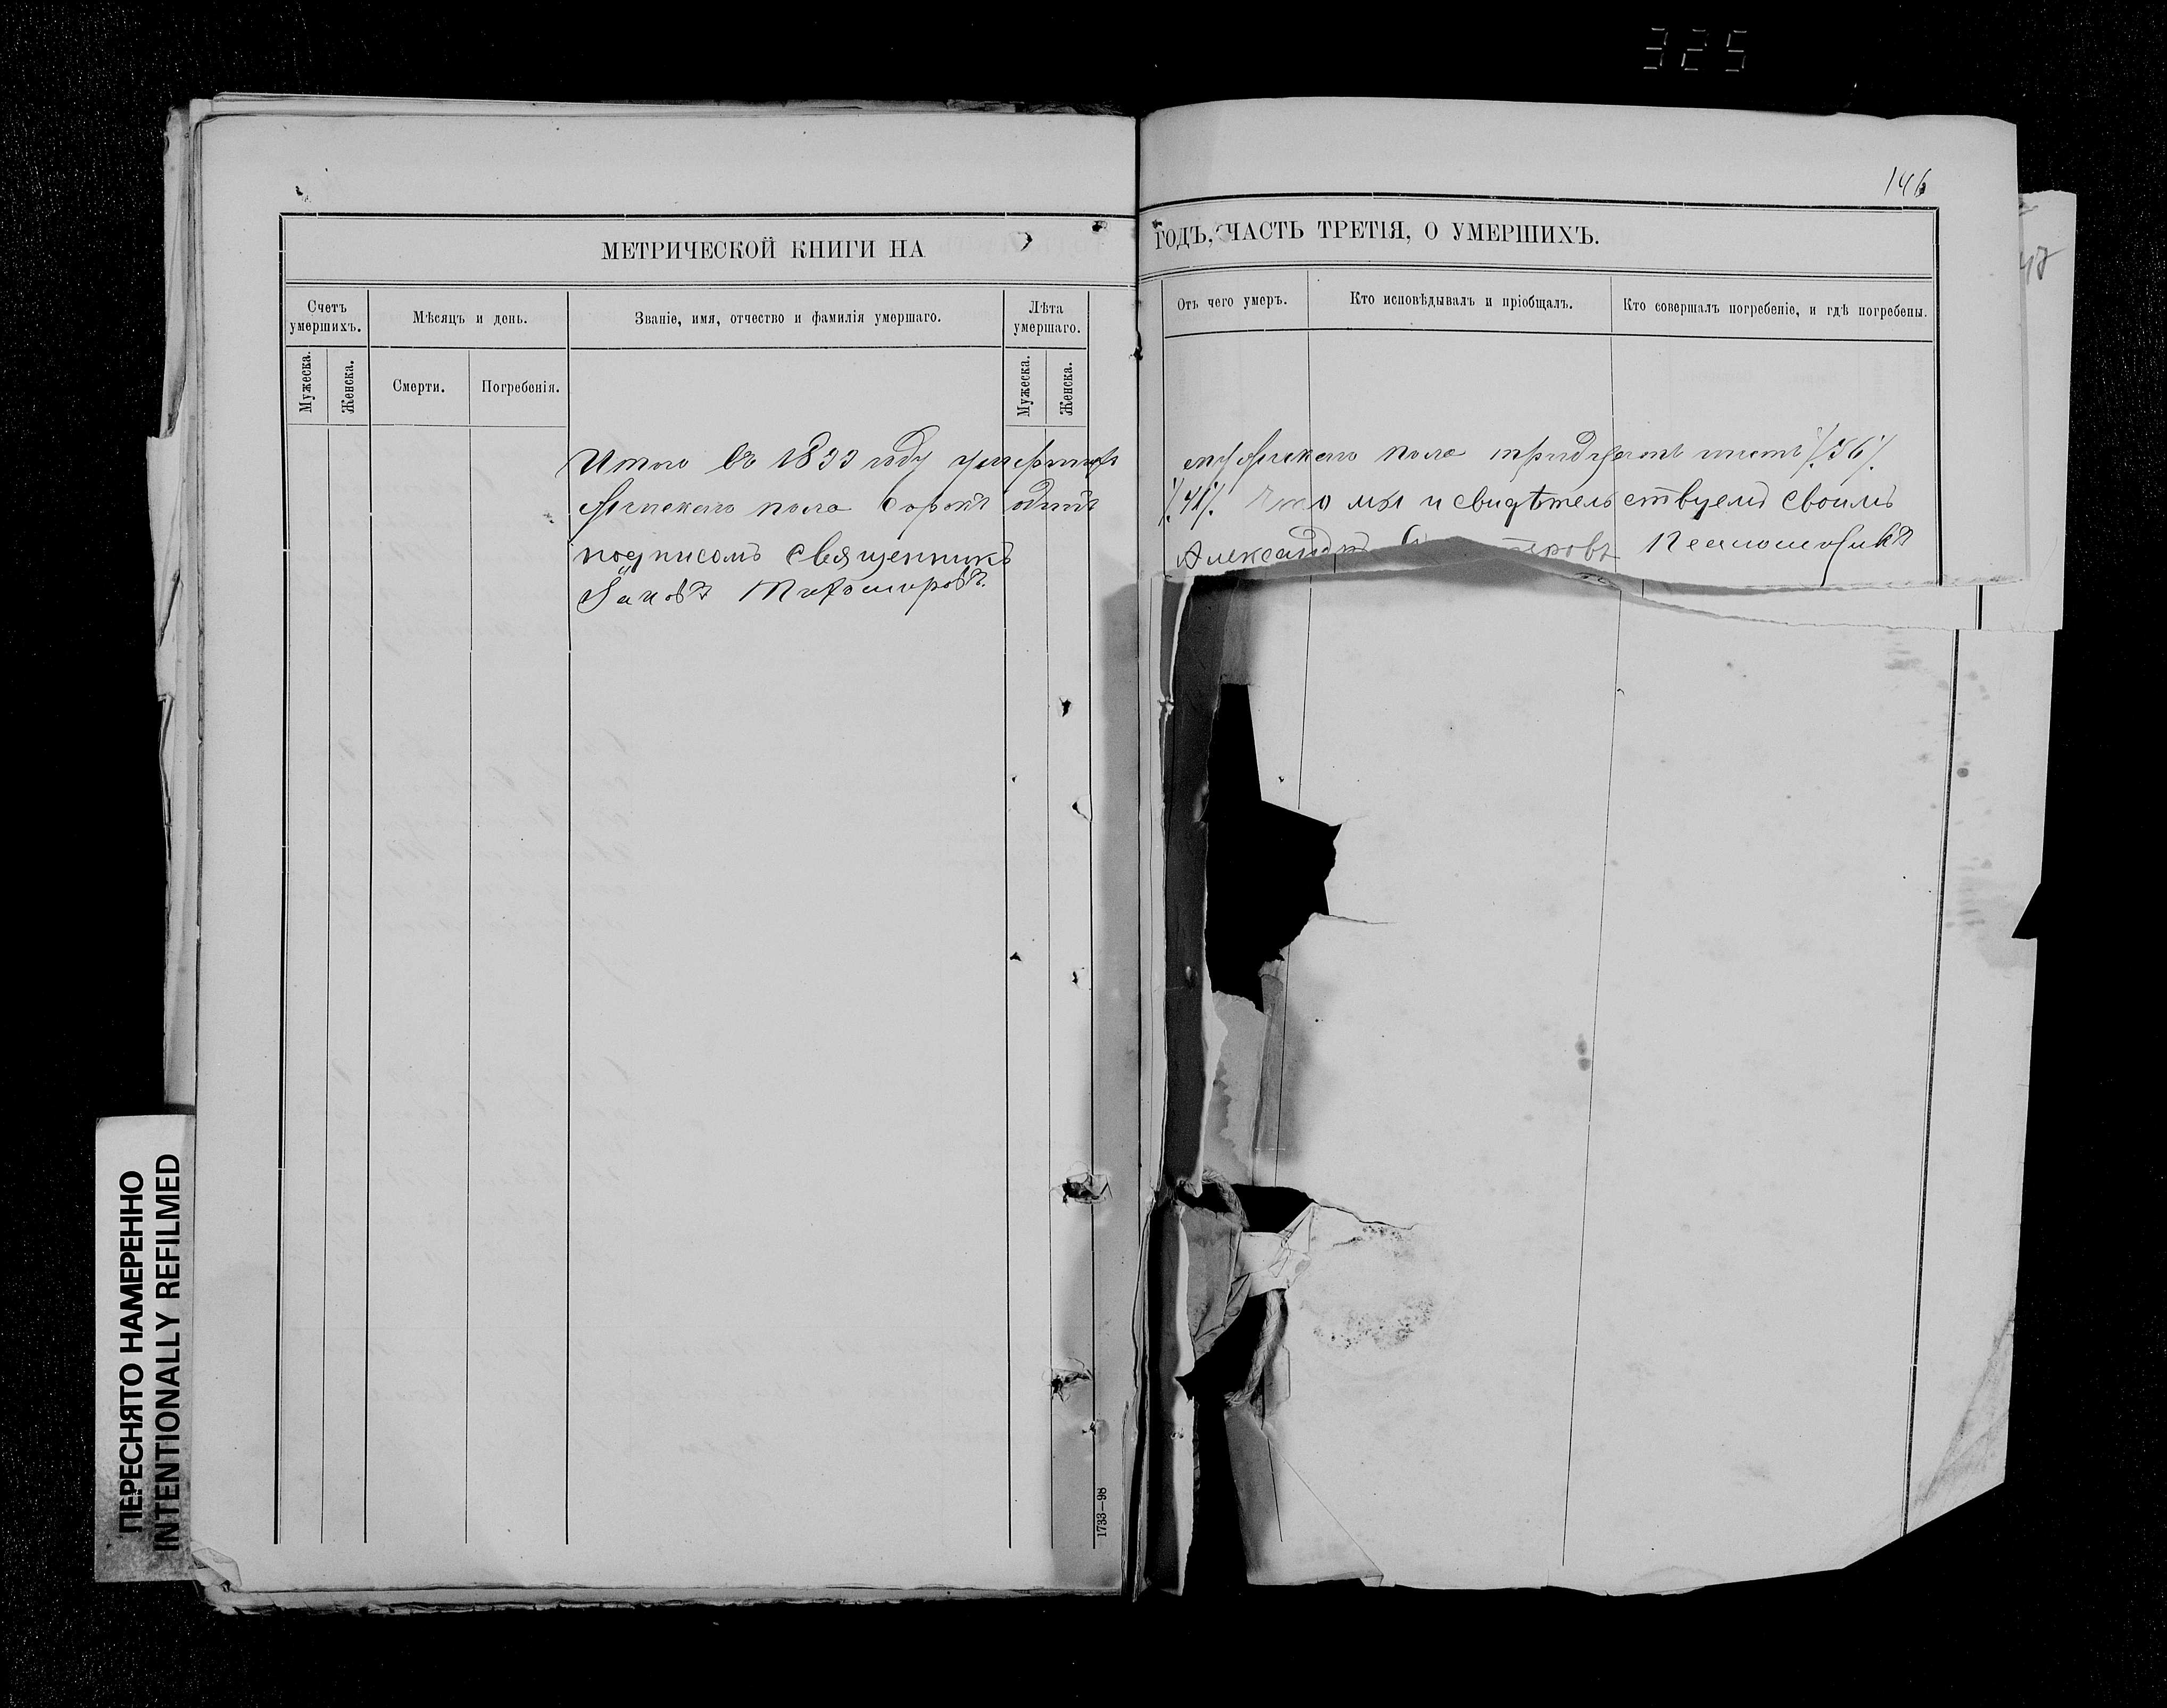 325
146
МЕТРИЧЕСКОЙ КНИГИ НА
ГОДЪ, ЧАСТЬ ТРЕТІЯ, О УМЕРШИХЪ.
Счетъ умершихъ.
Мѣсяцъ и день.
Званіе, имя, отчество и фамилія умершаго.
Лѣта умершаго.
Отъ чего умеръ.
Кто исповѣдывалъ и пріобщалъ.
Кто совершалъ погребеніе, и гдѣ погребены.
Мужеска.
Женска.
Смерти.
Погребенія.
Мужеска.
Женска.
Итого въ году умершихъ мужескаго пола тридцать шесть /.36/.
женскаго пола сорокъ одинъ /.41/. Что мы и свидѣтельствуемъ своимъ
подписомъ священникъ Александръ Псаломщикъ
Яковъ Тихомировъ.
1733—98
ПЕРЕСНЯТО НАМЕРЕННО
INTENTIONALLY REFILMED